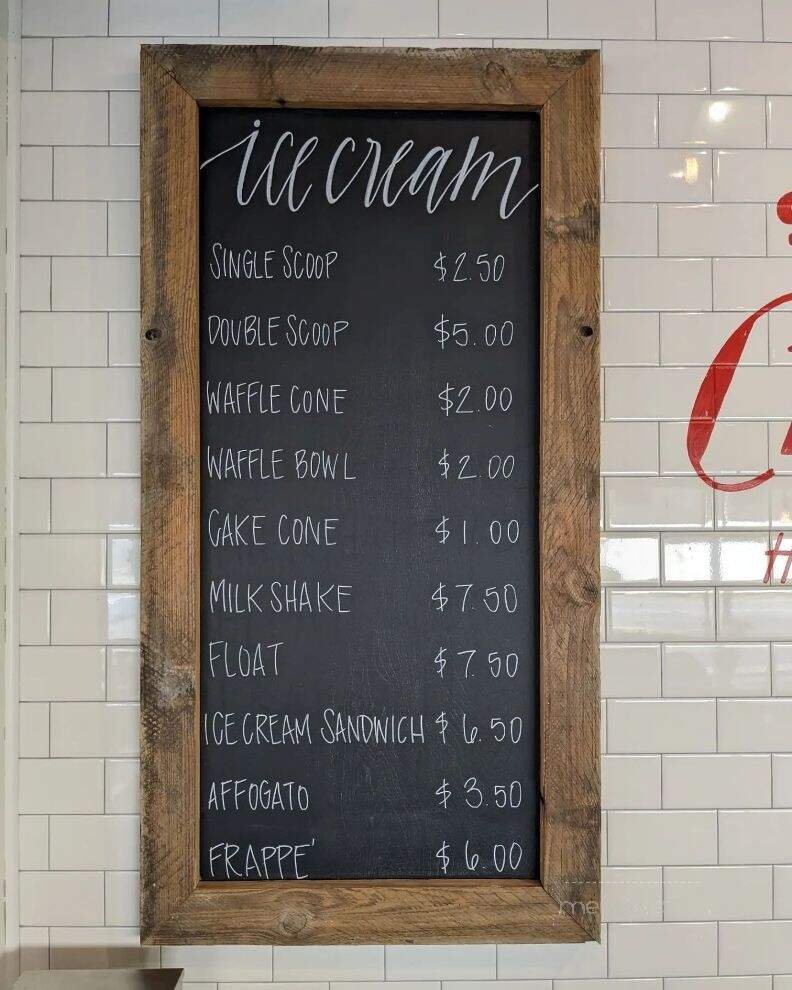 ice cream
SINGLE SCOOP $2.50
DOUBLE SCOOP $5.00
WAFFLE CONE $2.00
WAFFLE BOWL $2.00
CAKE CONE $1.00
MILKSHAKE $7.50
FLOAT $7.50
ICE CREAM SANDWICH $6.50
AFFOGATO $3.50
FRAPPE' $6.00